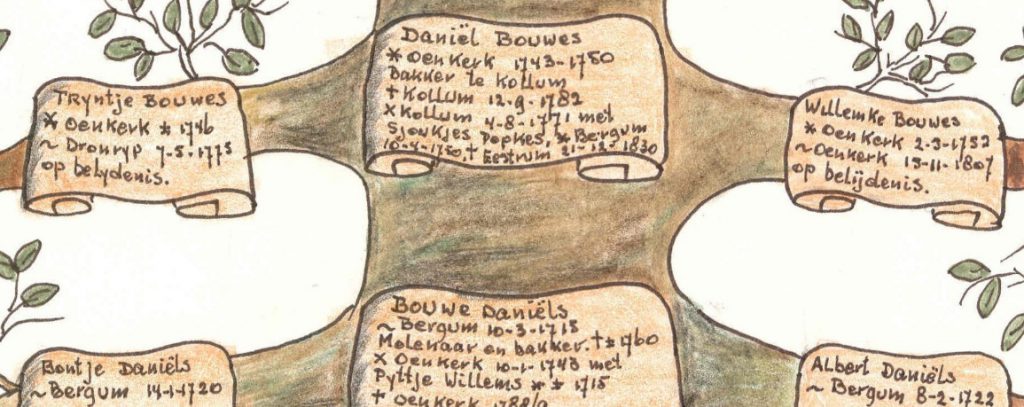 Daniël Bouwes
* Oenkerk 1743-1750
Bakker te Kollum
† Kollum 12-9-1782
x Kollum 4-8-1771 met
Sjoukjes Popkes, * Bergum
10-4-1750, † Eestrum 21-12-1830
Tryntje Bouwes
* Oenkerk * 1746
~ Dronryp 7-5-1775
op belydenis.
Willemke Bouwes
* Oenkerk 2-3-1752
~ Oenkerk 15-11-1807
op belijdenis.
Bouwe Daniëls
~ Bergum 10-3-1715
Molenaar en bakker. † ± 1760
x Oenkerk 10-1-1743 met
Pyttje Willems * ± 1715
† Oenkerk
Bontje Daniëls
~ Bergum 14-1-1720
Albert Daniëls
~ Bergum 8-2-1722